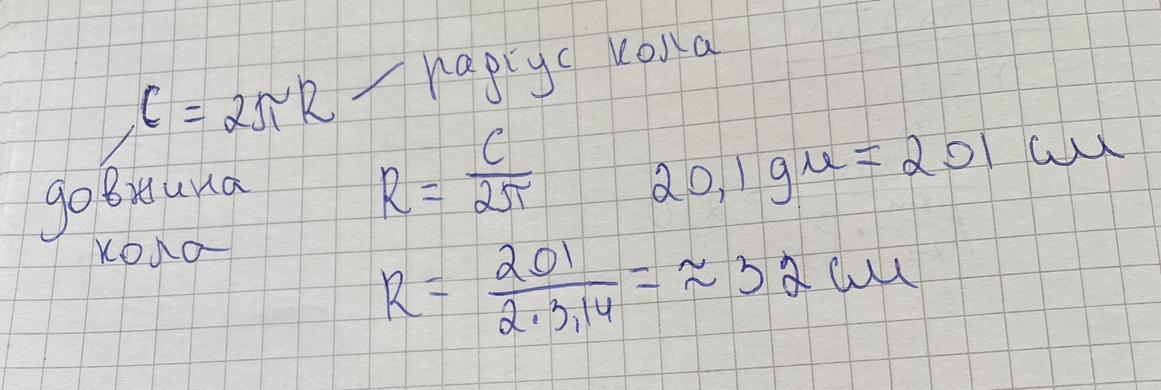 C = 2πR — радіус кола
довжина
кола
R = C/2π
20,1 дм = 201 см
R = 201/2·3,14 = ≈ 32 см